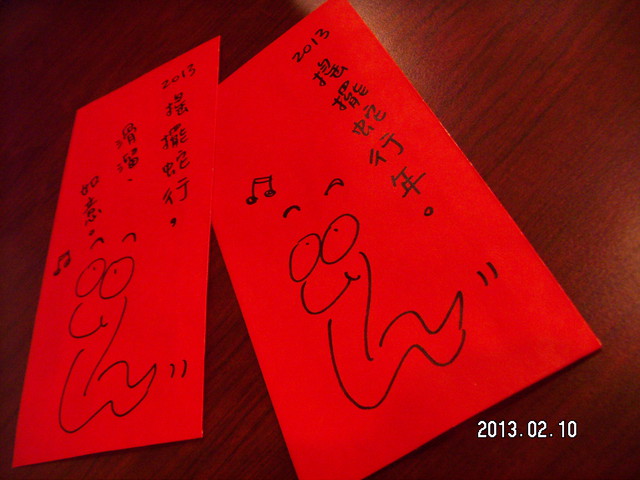 2013
搖擺蛇行，
滑溜、
如意。
2013
搖擺蛇行年。
2013.02.10